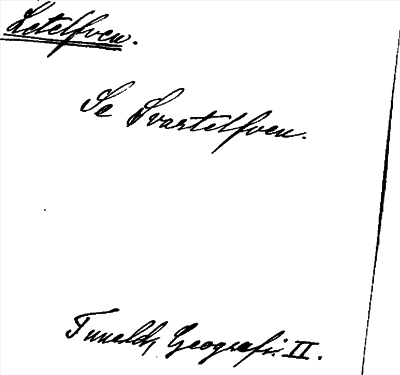 Letelfven.
Se Svartelfven.
Tunelds Geografi. II.